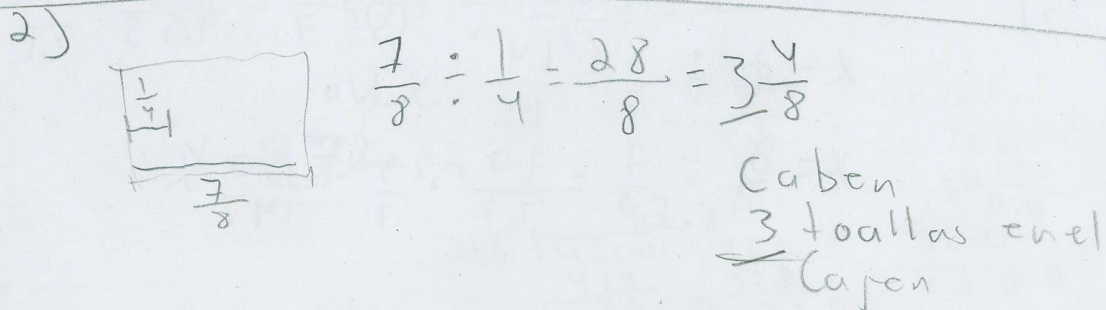 2)
1/4
7/8
7/8 ÷ 1/4 = 28/8 = 3 4/8
Caben
3 toallas en el
Cajon